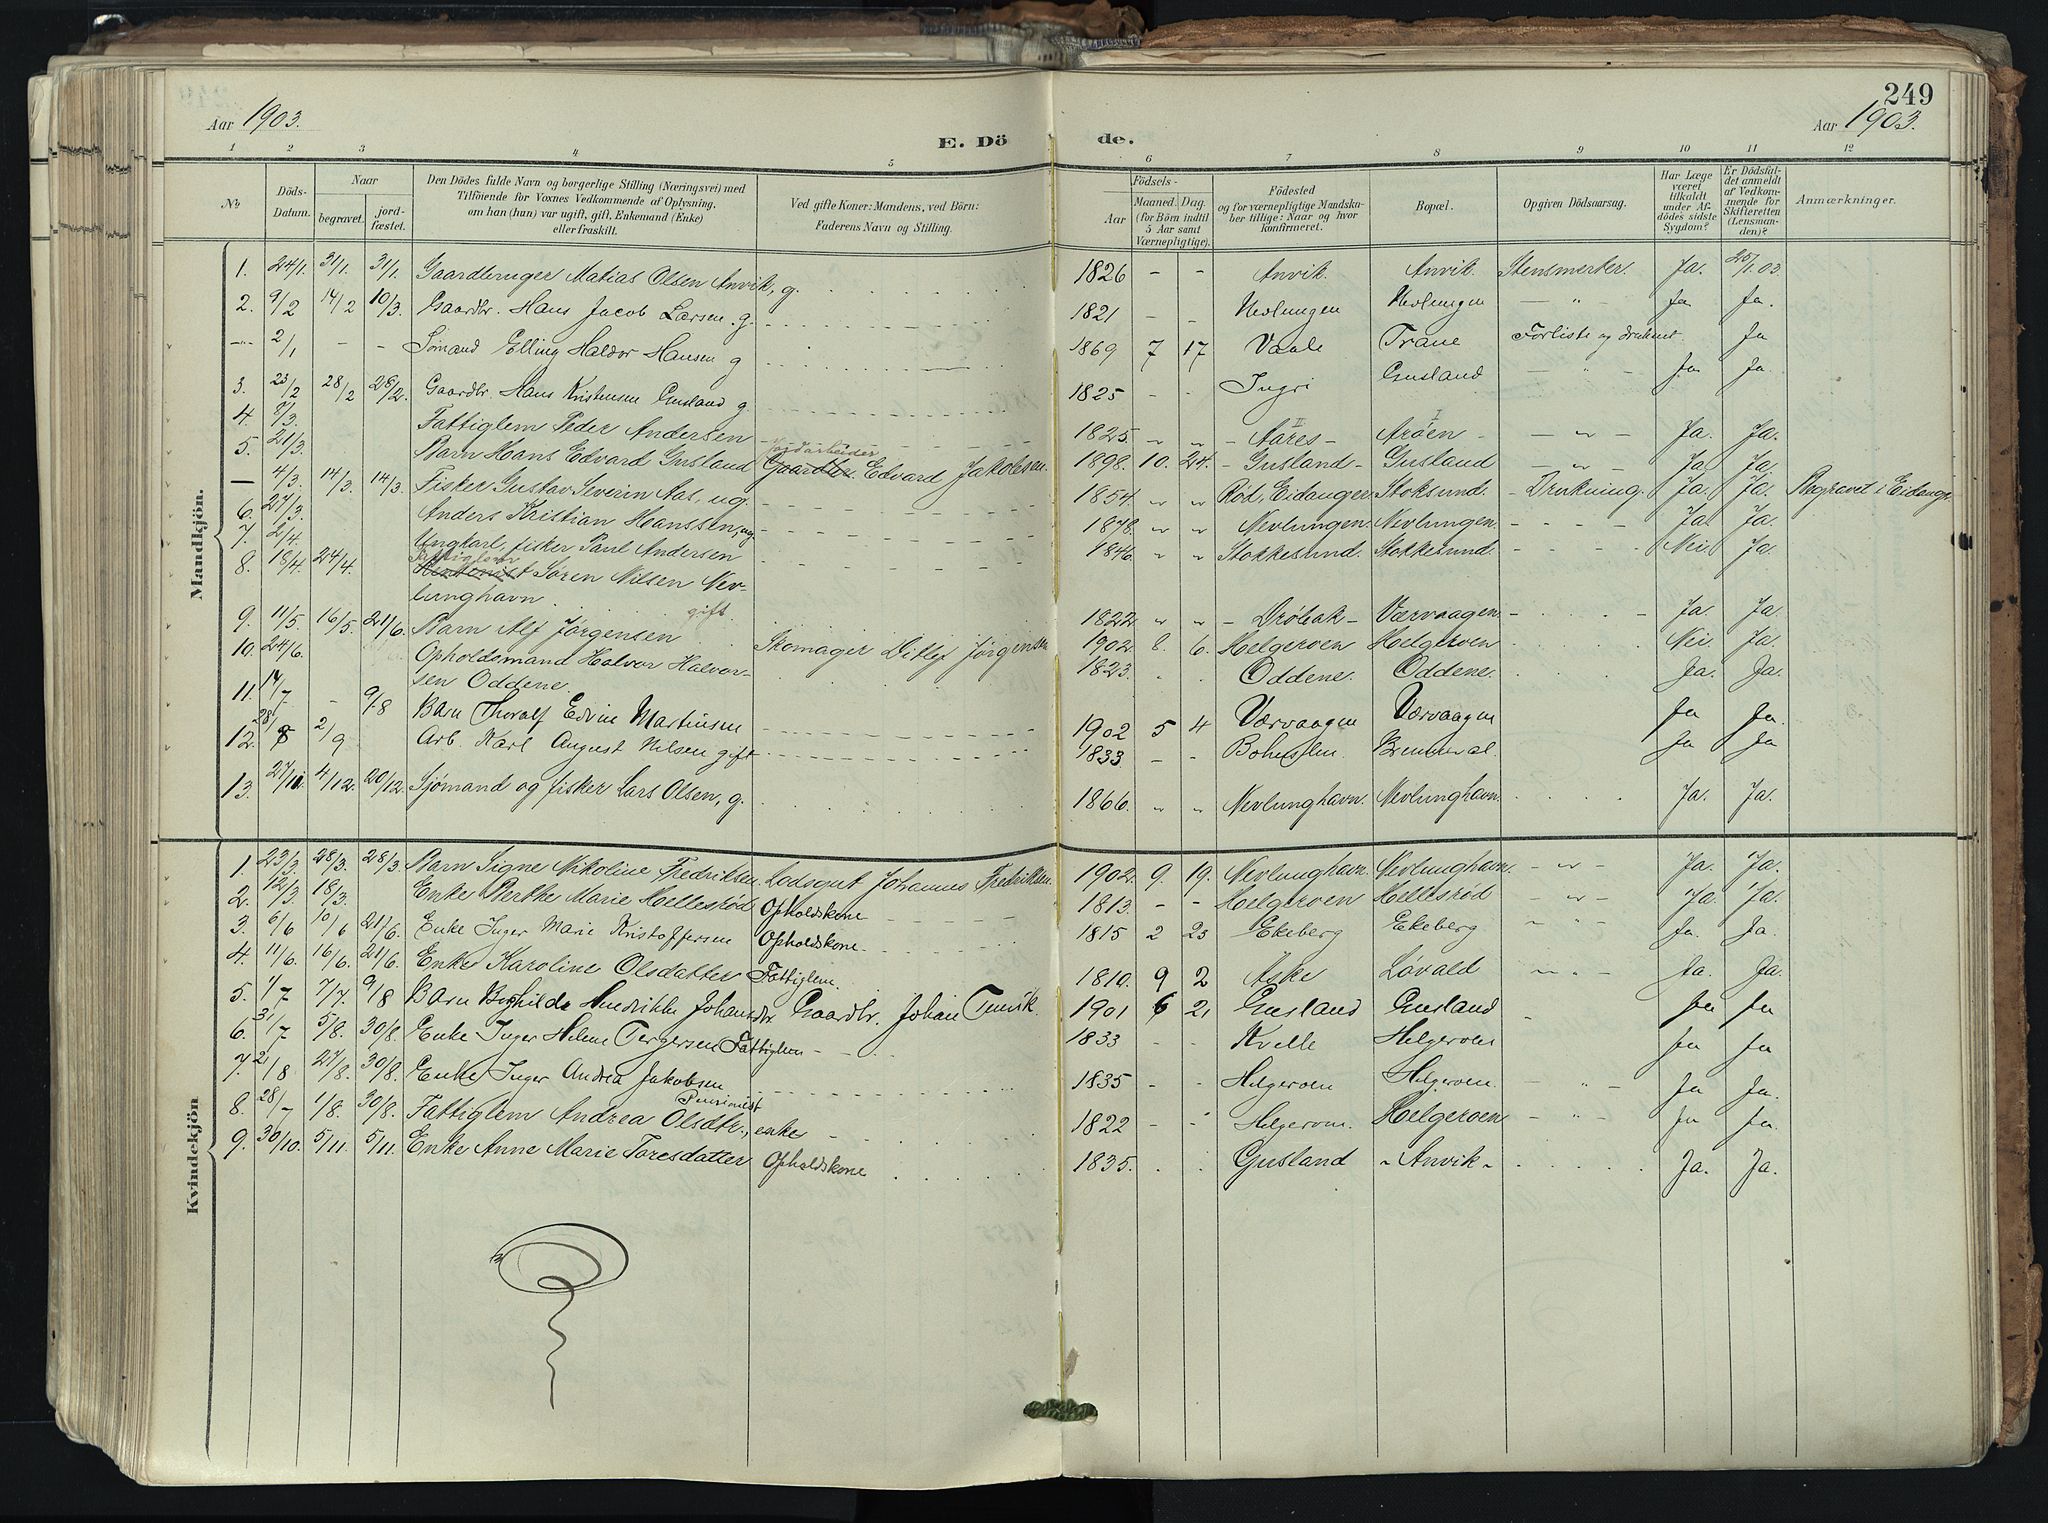 249
Aar 1903. E. Dö de. Aar 1903.
1 2 3 4 5 6 7 8 9 10 11 12
No Döds-Datum. Naar begravet. jord-fæstet. Den Dödes fulde Navn og borgerlige Stilling (Næringsvei) med Tilföiende for Voxnes Vedkommende af Oplysning, om han (hun) var ugift, gift, Enkemand (Enke) eller fraskilt. Ved gifte Koner: Mandens, ved Börn: Faderens Navn og Stilling. Födsels- Aar Maaned. Dag. (for Börn indtil 5 Aar samt Værnepligtige). Födested og for værnepligtige Mandska-ber tillige: Naar og hvor konfirmeret. Bopæl. Opgiven Dödsaarsag. Har Læge været tilkaldt under Af-dödes sidste Sygdom? Er Dödsfal-det anmeldt af Vedkom-mende for Skifteretten (Lensman-den)? Anmærkninger.
Mandkjön.
1. 24/1. 31/1. 31/1. Gaardbruger Matias Olsen Anvik, g. 1826 - - Anvik. Anvik. Ja. 25/1.03.
2. 9/2 14/2 10/3. Gaardbr. Hans Jacob Larsen g. 1821 - - Nevlungen Nevlungen - " - Ja Ja.
-"- 2/1 - - Sømand Elling Haldor Hansen g 1869 7 17 Vaale Trane Forliste og druknet Ja
3. 23/2 28/2 28/2. Gaardbr. Hans Kristensen Gusland g. 1825 Gusland - " - Ja Ja.
4. 8/3. Fattiglem Peder Andersen 1825. " " - Aares - Arøen - " - Ja. Ja.
5. 21/3. Barn Hans Edvard Gusland Jordarbeider Gaardbr. Edvard Jakobsen. 1898. 10. 24. - Gusland - Gusland - " - Ja. Ja.
- 4/3. 14/3. 14/3 Fisker Gustav Severin Aas, ug. 1854. " " Rød, Eidanger Stoksund. - Drukning. Ja. Ja. Begravet i Eidanger
6. 27/3. Anders Kristian Hanssen, ug 1878. " " Nevlungen. Nevlungen. Ja. Ja.
7. 2/4. Ungkarl, fisker Paul Andersen 1846. " " Stokkesund. Stokkesund. Nei. Ja.
8. 18/4. 24/4. Fattiglem Søren Nilsen Nev-
lunghavn. gift. 1822. " " - Drøbak - Værvaagen - Ja. Ja.
9. 11/5 16/5. 21/6. Barn Alf Jørgensen Skomager Ditlef Jørgensen 1902. 8. 6. Helgeroen Helgeroen Nei. Ja.
10. 24/6. Opholdsmand Halvor Halvor-
sen Oddene. 1823. Oddene. Oddene. Ja. Ja.
11. 17/7 - 9/8 Barn Thoralf Edvin Martinsen 1902 5 4 Værvaagen Værvaagen Ja Ja.
12. 28/8 2/9 Arb. Karl August Nilsen gift 1833 - - Ja Ja
13. 27/11. 4/12. 20/12. Sjømand og fisker Lars Olsen, g. 1866. " " Nevlunghavn. Nevlunghavn. Ja. Ja.
Kvindekjön
1. 23/3. 28/3. 28/3. Barn Signe Nikoline Fredriksen Lodsgut Johannes Fredriksen. 1902. 9. 19. Nevlunghavn. Nevlunghavn. - " - Ja. Ja.
2. 12/3. 18/3. Enke Berthe Marie Hellesrød Opholdskone 1813. - - Helgeroen Hellesrød - " - Ja. Ja.
3. 6/6 10/6 21/6. Enke Inger Marie Kristoffersen Opholdskone 1815 2 23 Ekeberg Ekeberg - " - Ja. Ja.
4. 11/6. 16/6. 21/6. Enke Karoline Olsdatter Fattiglem. 1810. 9 2 Aske Løvald - " - Ja. Ja.
5. 1/7 7/7. 9/8 Barn Borghilda Hendrikke Johansdtr. Gaardbr. Johan Tenvik. 1901 6 2, Gusland Gusland Ja Ja
6. 31/7 5/8. 30/8. Enke Inger Helene Tergersen Fattiglem 1833 - - Kvelle Helgeroen Ja Ja
7. 21/8 27/8. 30/8. Enke Inger Andrea Jakobsen 1835 - - Helgeroen Helgeroen. Ja Ja.
8. 28/7 1/8. 30/8. Fattiglem Andrea Olsdtr., Pensionist enke 1822 - - Helgeroen. Helgeroen - " - Ja Ja.
9. 30/10. 5/11. 5/11. Enke Anne Marie Toresdatter Opholdskone 1835. Gusland - Anvik - Ja. Ja.